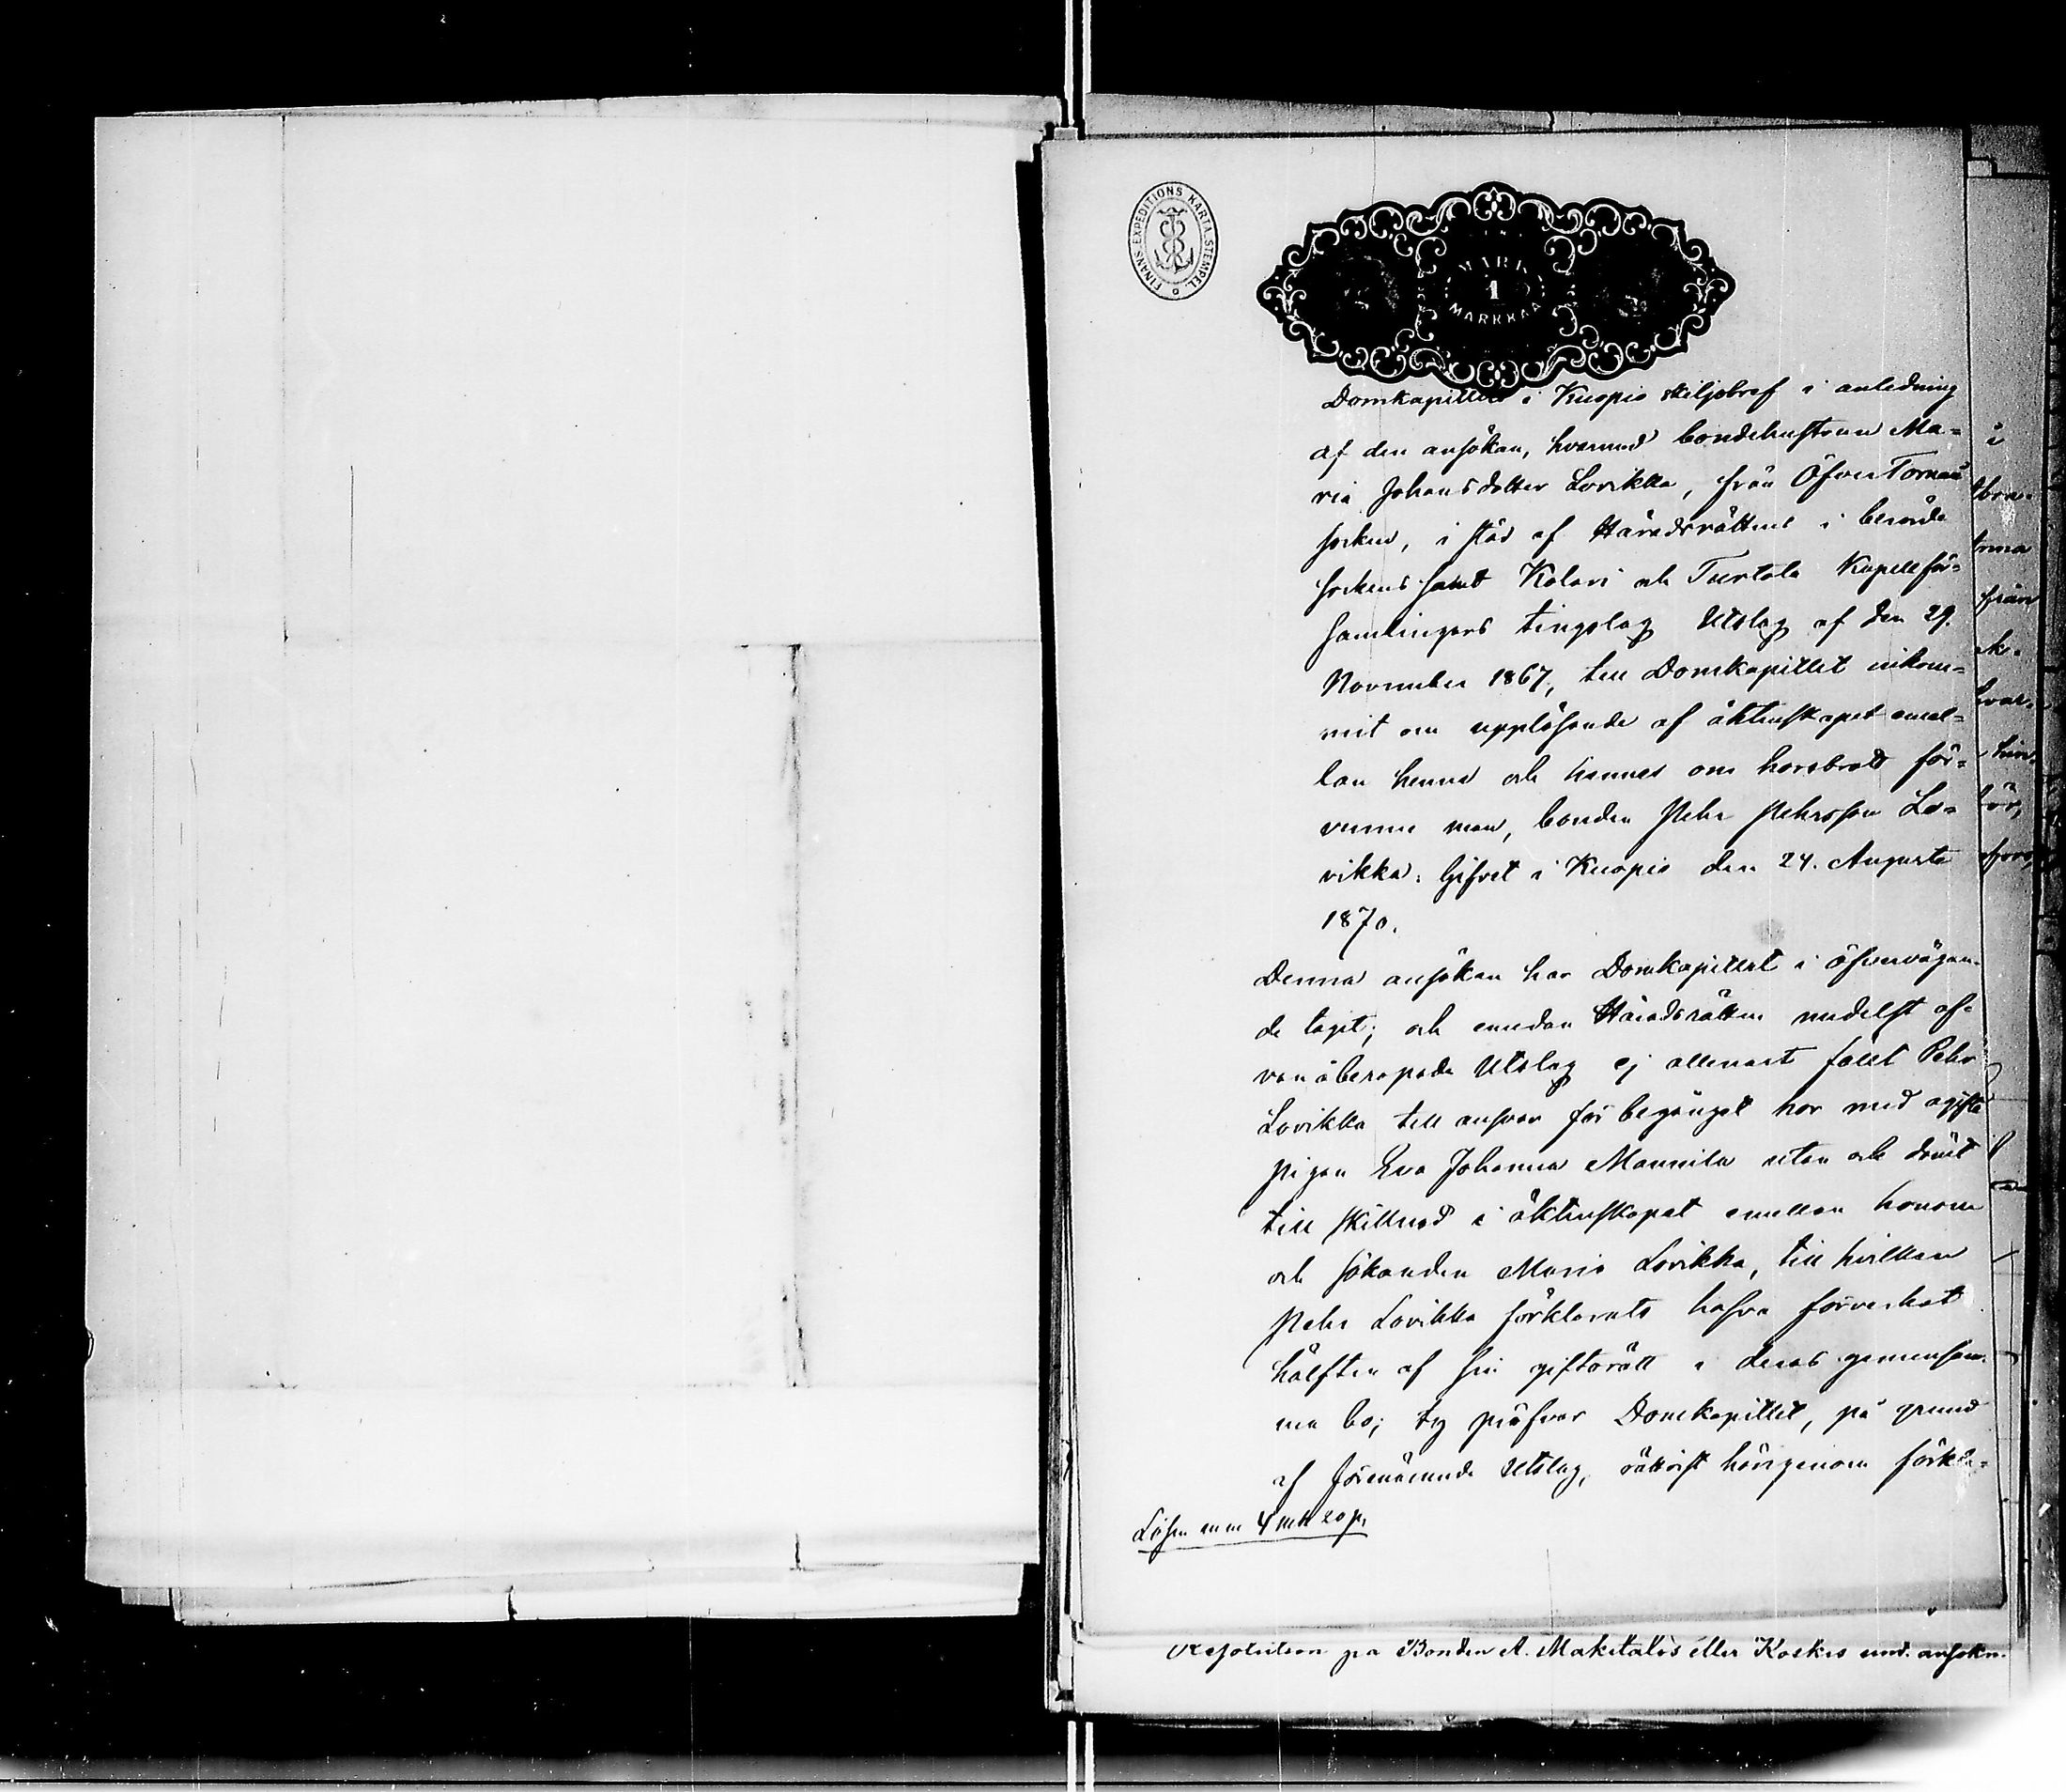 FINANS-EXPEDITIONS KARTA.STEMPEL.
MARK
1
MARKKAA
Domkapitlets i Kuopio skiljobref i anledning
af den ansökan, hvarmed bondehustrun Ma-
ria Johansdotter Lovikka, från ÖfverTorneå
socken, i stöd af Häradsrättens i berörde
sockens samt Kolari och Turtola Kapellför-
samlingars tingslag Utslag af den 29.
November 1867, till Domkapitlet inkom-
mit om upplösande af äktenskapet emel-
lan henne och hennes om horsbrott för-
vunne man, bonden Pehr Pehrsson Lo-
vikka. Gifvet i Kuopio den 24. Augusti
1870.
Denna ansökan har Domkapitlet i öfvervägan-
de tagit; och emedan Häradsrätten medelst of-
van åberopade Utslag ej allenast fällt Pehr
Lovikka till ansvar för begånget hor med ogifta
pigan Eva Johanna Mannila utan och dömt
till skillnad i äktenskapet emellan honom
och sökanden Maria Lovikka, till hvilken
Pehr Lovikka förklarats hafva förverkat
hälften af sin giftorätt i deras gemensam-
ma bo; ty pröfvar Domkapitlet, på grund
af förenämnde Utslag, rättvist härigenom förkla-
Lösen 4 mk 20 p.
Resolution på Bonden A. Makitalos eller Koskis und. ansökn.